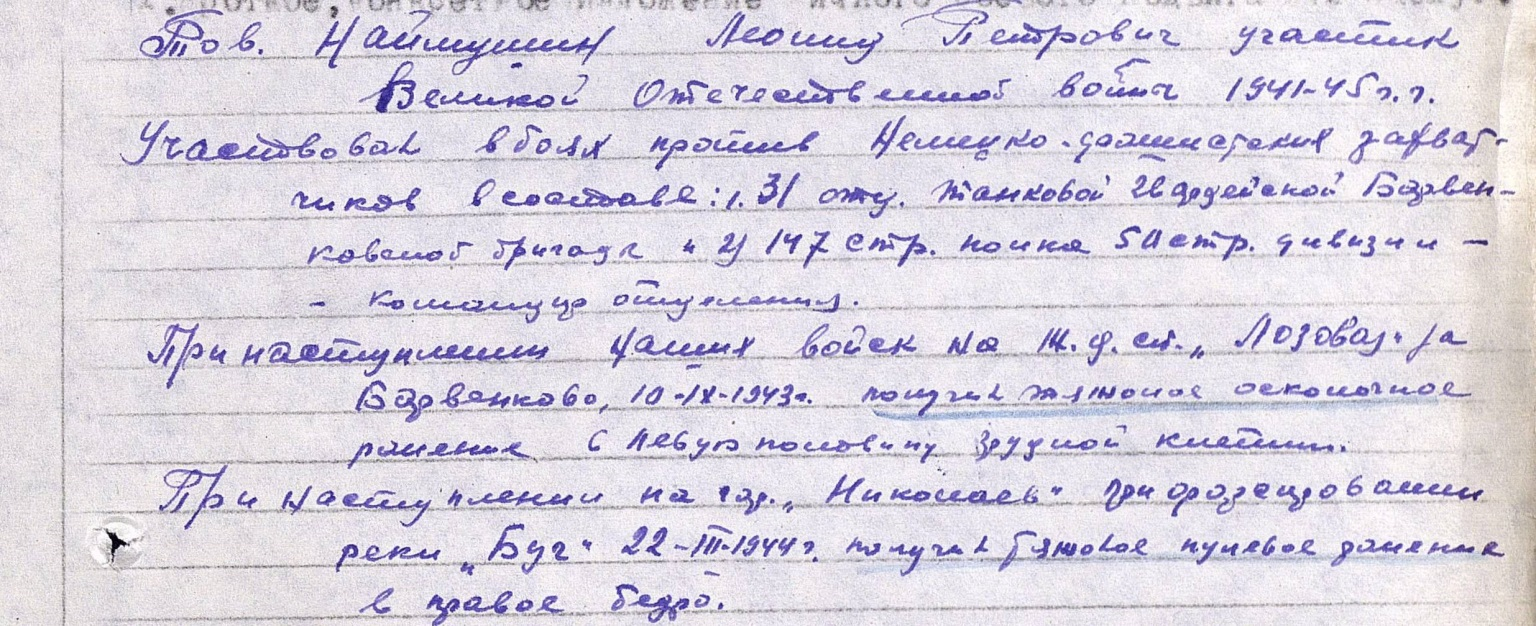 1. Краткое, конкретное изложение личного боевого подвига или заслуг.
Тов. Наймушин Леонид Петрович участник
Великой Отечественной войны 1941-45 г.г.
Участвовал в боях против Немецко-фашистских захват-
чиков в составе: 1. 31 отд. танковой Гвардейской Барвен-
ковской бригады и 2) 147 стр. полка 50 стр. дивизии —
- командир отделения.
При наступлении наших войск на Ж.д. ст. „Лозовая" за
Барвенково, 10-IX-1943г. получил тяжолое осколочное
ранение в левую половину грудной клетки.
При наступлении на гор. „Николаев" при форсировании
реки „Буг" 22-III-1944г. получил тяжолое пулевое ранение
в правое бедро.